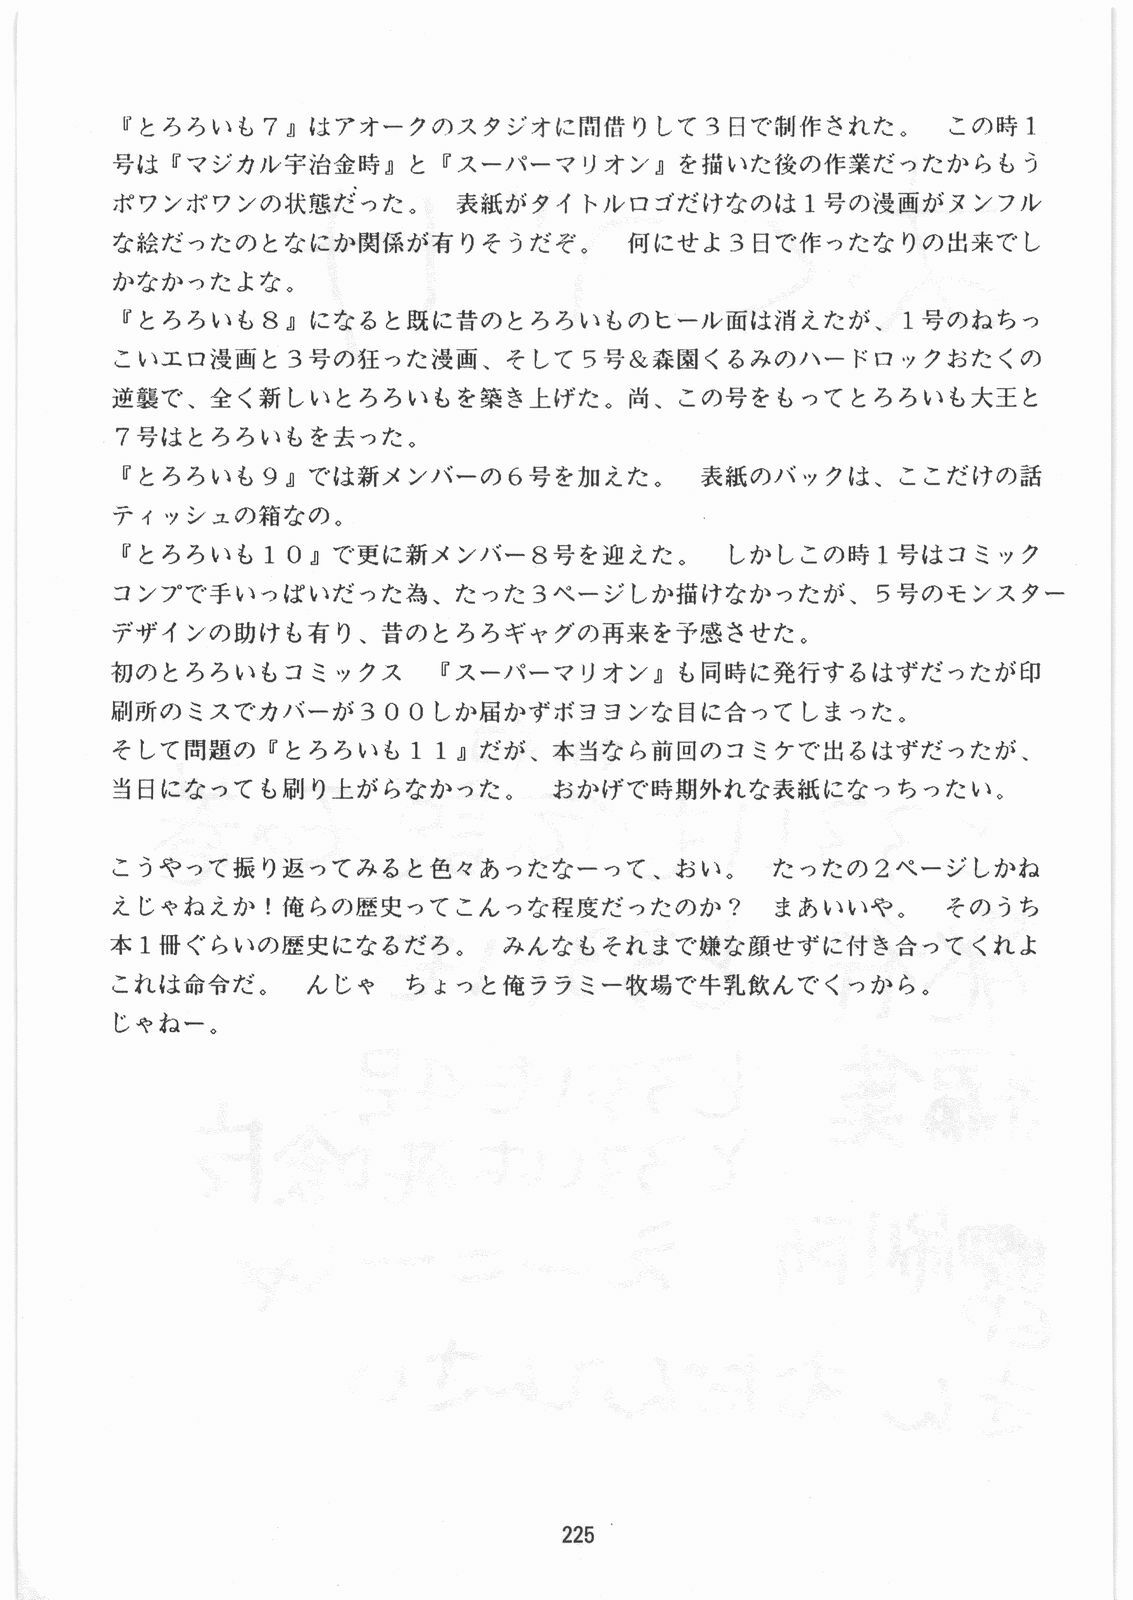 『とろろいも７』はアオークのスタジオに間借りして３日で制作された。　この時１
号は『マジカル宇治金時』と『スーパーマリオン』を描いた後の作業だったからもう
ポワンポワンの状態だった。　表紙がタイトルロゴだけなのは１号の漫画がヌンフル
な絵だったのとなにか関係が有りそうだぞ。　何にせよ３日で作ったなりの出来でし
かなかったよな。
『とろろいも８』になると既に昔のとろろいものヒール面は消えたが、１号のねちっ
こいエロ漫画と３号の狂った漫画、そして５号＆森園くるみのハードロックおたくの
逆襲で、全く新しいとろろいもを築き上げた。尚、この号をもってとろろいも大王と
７号はとろろいもを去った。
『とろろいも９』では新メンバーの６号を加えた。　表紙のバックは、ここだけの話
ティッシュの箱なの。
『とろろいも１０』で更に新メンバー８号を迎えた。　しかしこの時１号はコミック
コンプで手いっぱいだった為、たった３ページしか描けなかったが、５号のモンスター
デザインの助けも有り、昔のとろろギャグの再来を予感させた。
初のとろろいもコミックス　『スーパーマリオン』も同時に発行するはずだったが印
刷所のミスでカバーが３００しか届かずボヨヨンな目に合ってしまった。
そして問題の『とろろいも１１』だが、本当なら前回のコミケで出るはずだったが、
当日になっても刷り上がらなかった。　おかげで時期外れな表紙になっちったい。
こうやって振り返ってみると色々あったなーって、おい。　たったの２ページしかね
えじゃねえか！俺らの歴史ってこんっな程度だったのか？　まあいいや。　そのうち
本１冊ぐらいの歴史になるだろ。　みんなもそれまで嫌な顔せずに付き合ってくれよ
これは命令だ。　んじゃ　ちょっと俺ララミー牧場で牛乳飲んでくっから。
じゃねー。
225